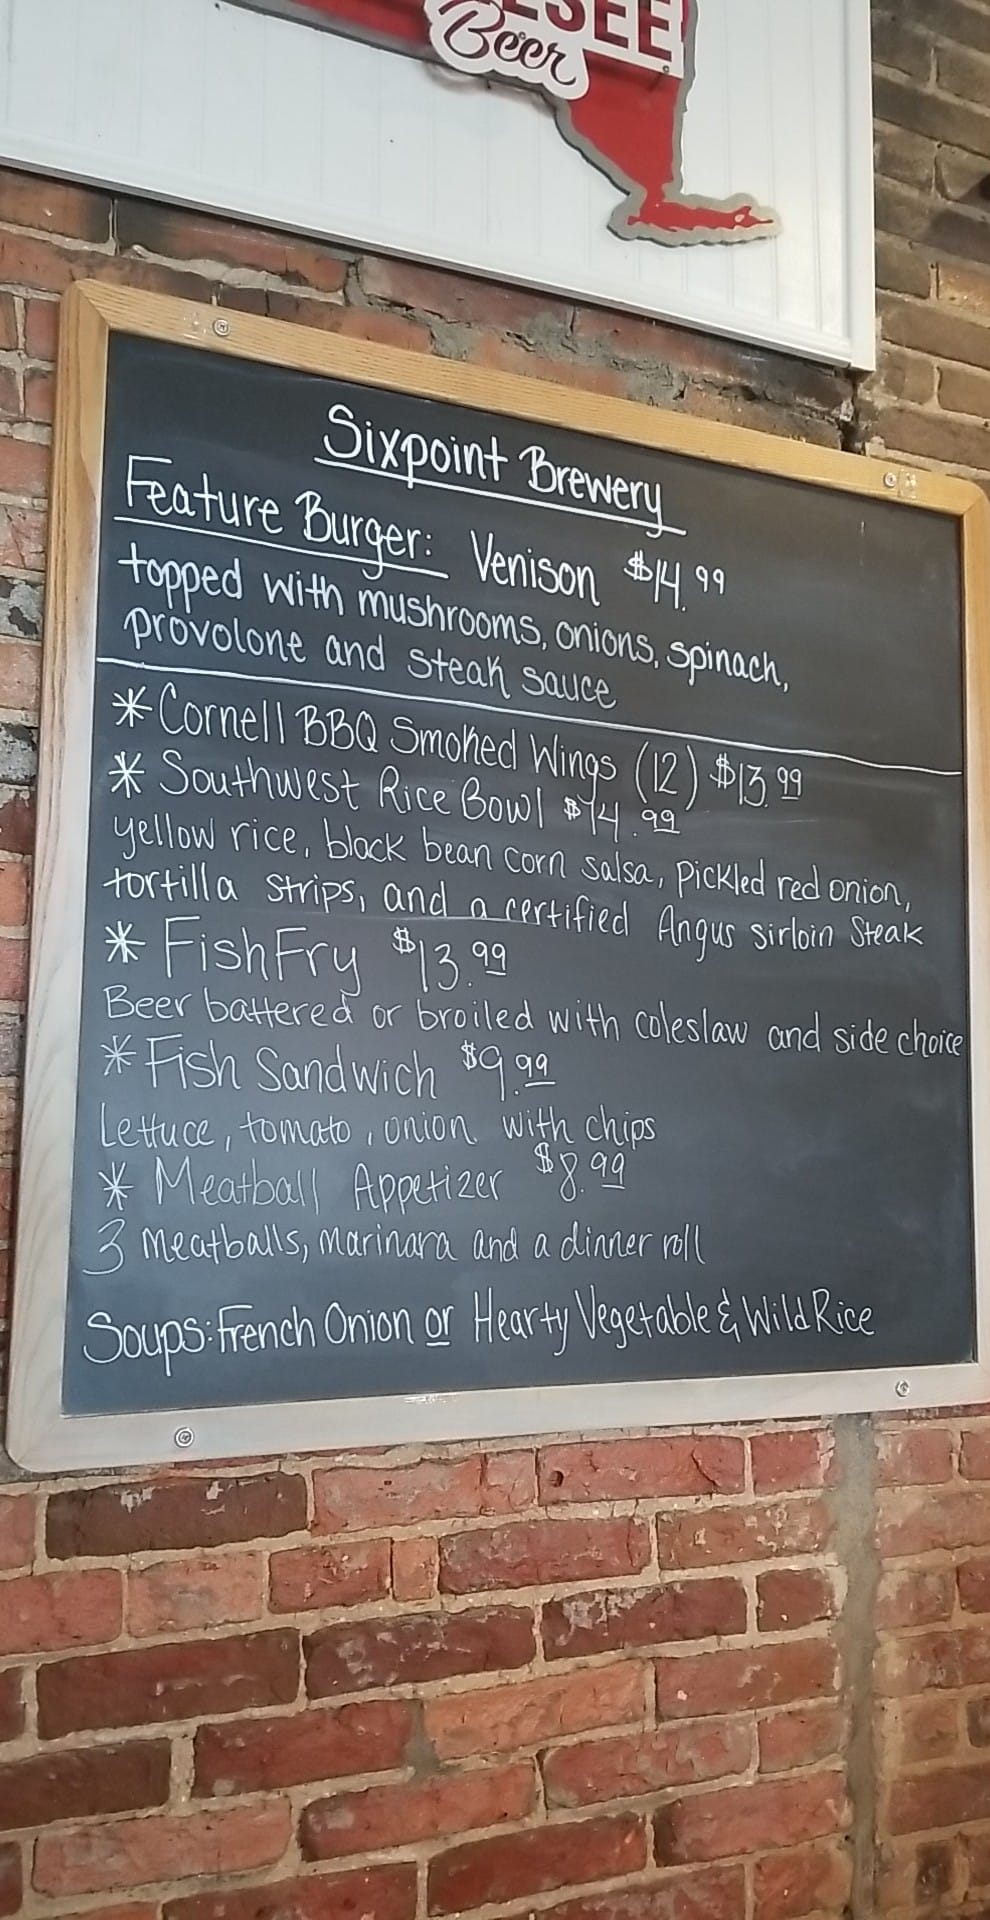 ESEE
Beer
Sixpoint Brewery
Feature Burger: Venison $14.99
topped with mushrooms, onions, spinach,
provolone and steak sauce
* Cornell BBQ Smoked Wings (12) $13.99
* Southwest Rice Bowl $14.99
yellow rice, black bean corn salsa, pickled red onion,
tortilla strips, and a certified Angus sirloin steak
* Fish Fry $13.99
Beer battered or broiled with coleslaw and side choice
* Fish Sandwich $9.99
Lettuce, tomato, onion with chips
* Meatball Appetizer $8.99
3 meatballs, marinara and a dinner roll
Soups: French Onion or Hearty Vegetable & Wild Rice